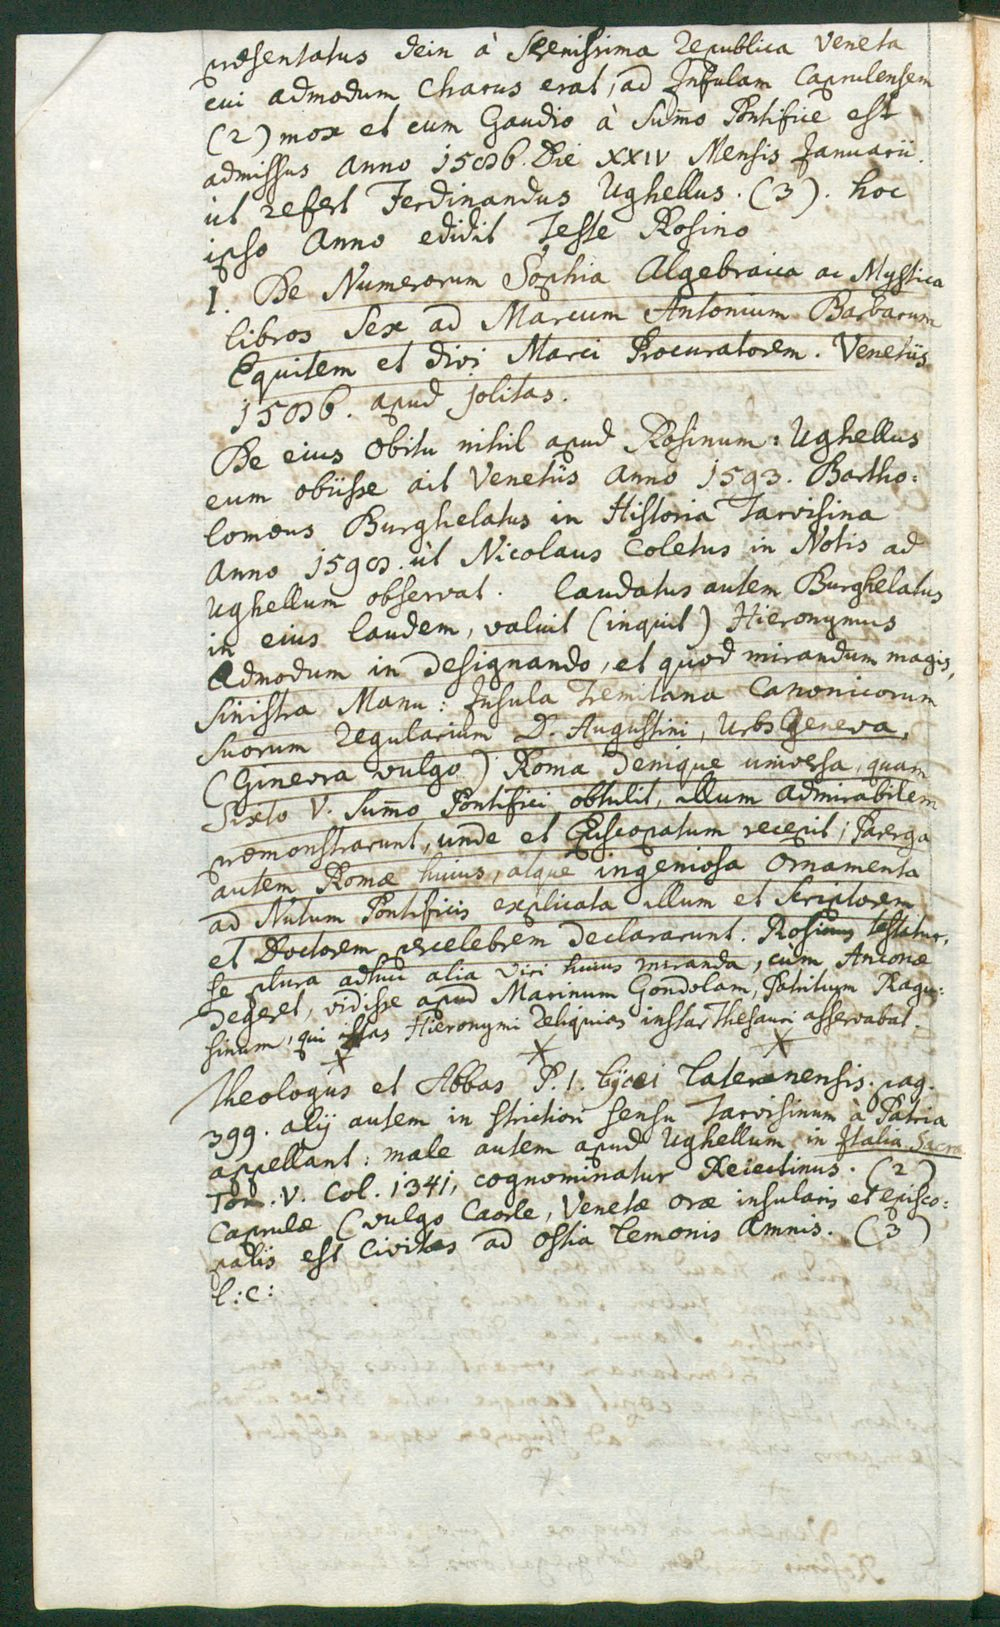 præsentatus dein à Serenissima Republica Veneta
cui admodum Charus erat, ad Infulam Caprulensem
(2) mox et cum Gaudio à Summo Pontifice est
admissus Anno 1586. Die XXIV Mensis Januarii.
ut refert Ferdinandus Ughellus. (3). hoc
ipso Anno edidit Teste Rosino
I. De Numerorum Sophia Algebraica ac Mystica
libros Sex ad Marcum Antonium Barbarum
Equitem et divi Marci Procuratorem. Venetiis
1586. apud Jolitas.
De eius Obitu nihil apud Rosinum: Ughellus
eum obiisse ait Venetiis Anno 1593. Bartho:
lomæus Burghelatus in Historia Tarvisina
Anno 1598. ut Nicolaus Coletus in Notis ad
Ughellum observat. Laudatus autem Burghelatus
in eius laudem, valuit (inquit) Hieronymus
Admodum in designando, et quod mirandum magis,
Sinistra Manu: Insula Tremitana Canonicorum
Suorum Regularium D. Augustini, Urbs Geneva,
(Ginevra vulgo) Roma denique universa, quam
Sixto V. Summo Pontifici obtulit, illum admirabilem
præmonstrarunt, unde et Episcopatum recepit; Parerga
autem Romæ huius, atque ingeniosa Ornamenta
ad Nutum Pontificis explicata illum et Scriptorem
et Doctorem percelebrem declararunt. Rosinus testatur,
se plura adhuc alia Viri huius miranda, cùm Anconæ
degeret, vidisse apud Marinum Gondolam, Patritium Ragu:
sinum, qui istas Hieronymi Reliquias instar Thesauri asservabat.
Theologus et Abbas P. 1. Lycæi Lateranensis. pag.
399. alij autem in strictiori sensu Tarvisinum à Patria
appellant: male autem apud Ughellum in Italia Sacra
Tom. V. Col. 1341, cognominatur Reiectinus. (2)
Caprulæ (vulgo Caorle, Venetæ oræ insularis et episco:
palis est Civitas ad ostia Lemonis Amnis. (3)
l: c: